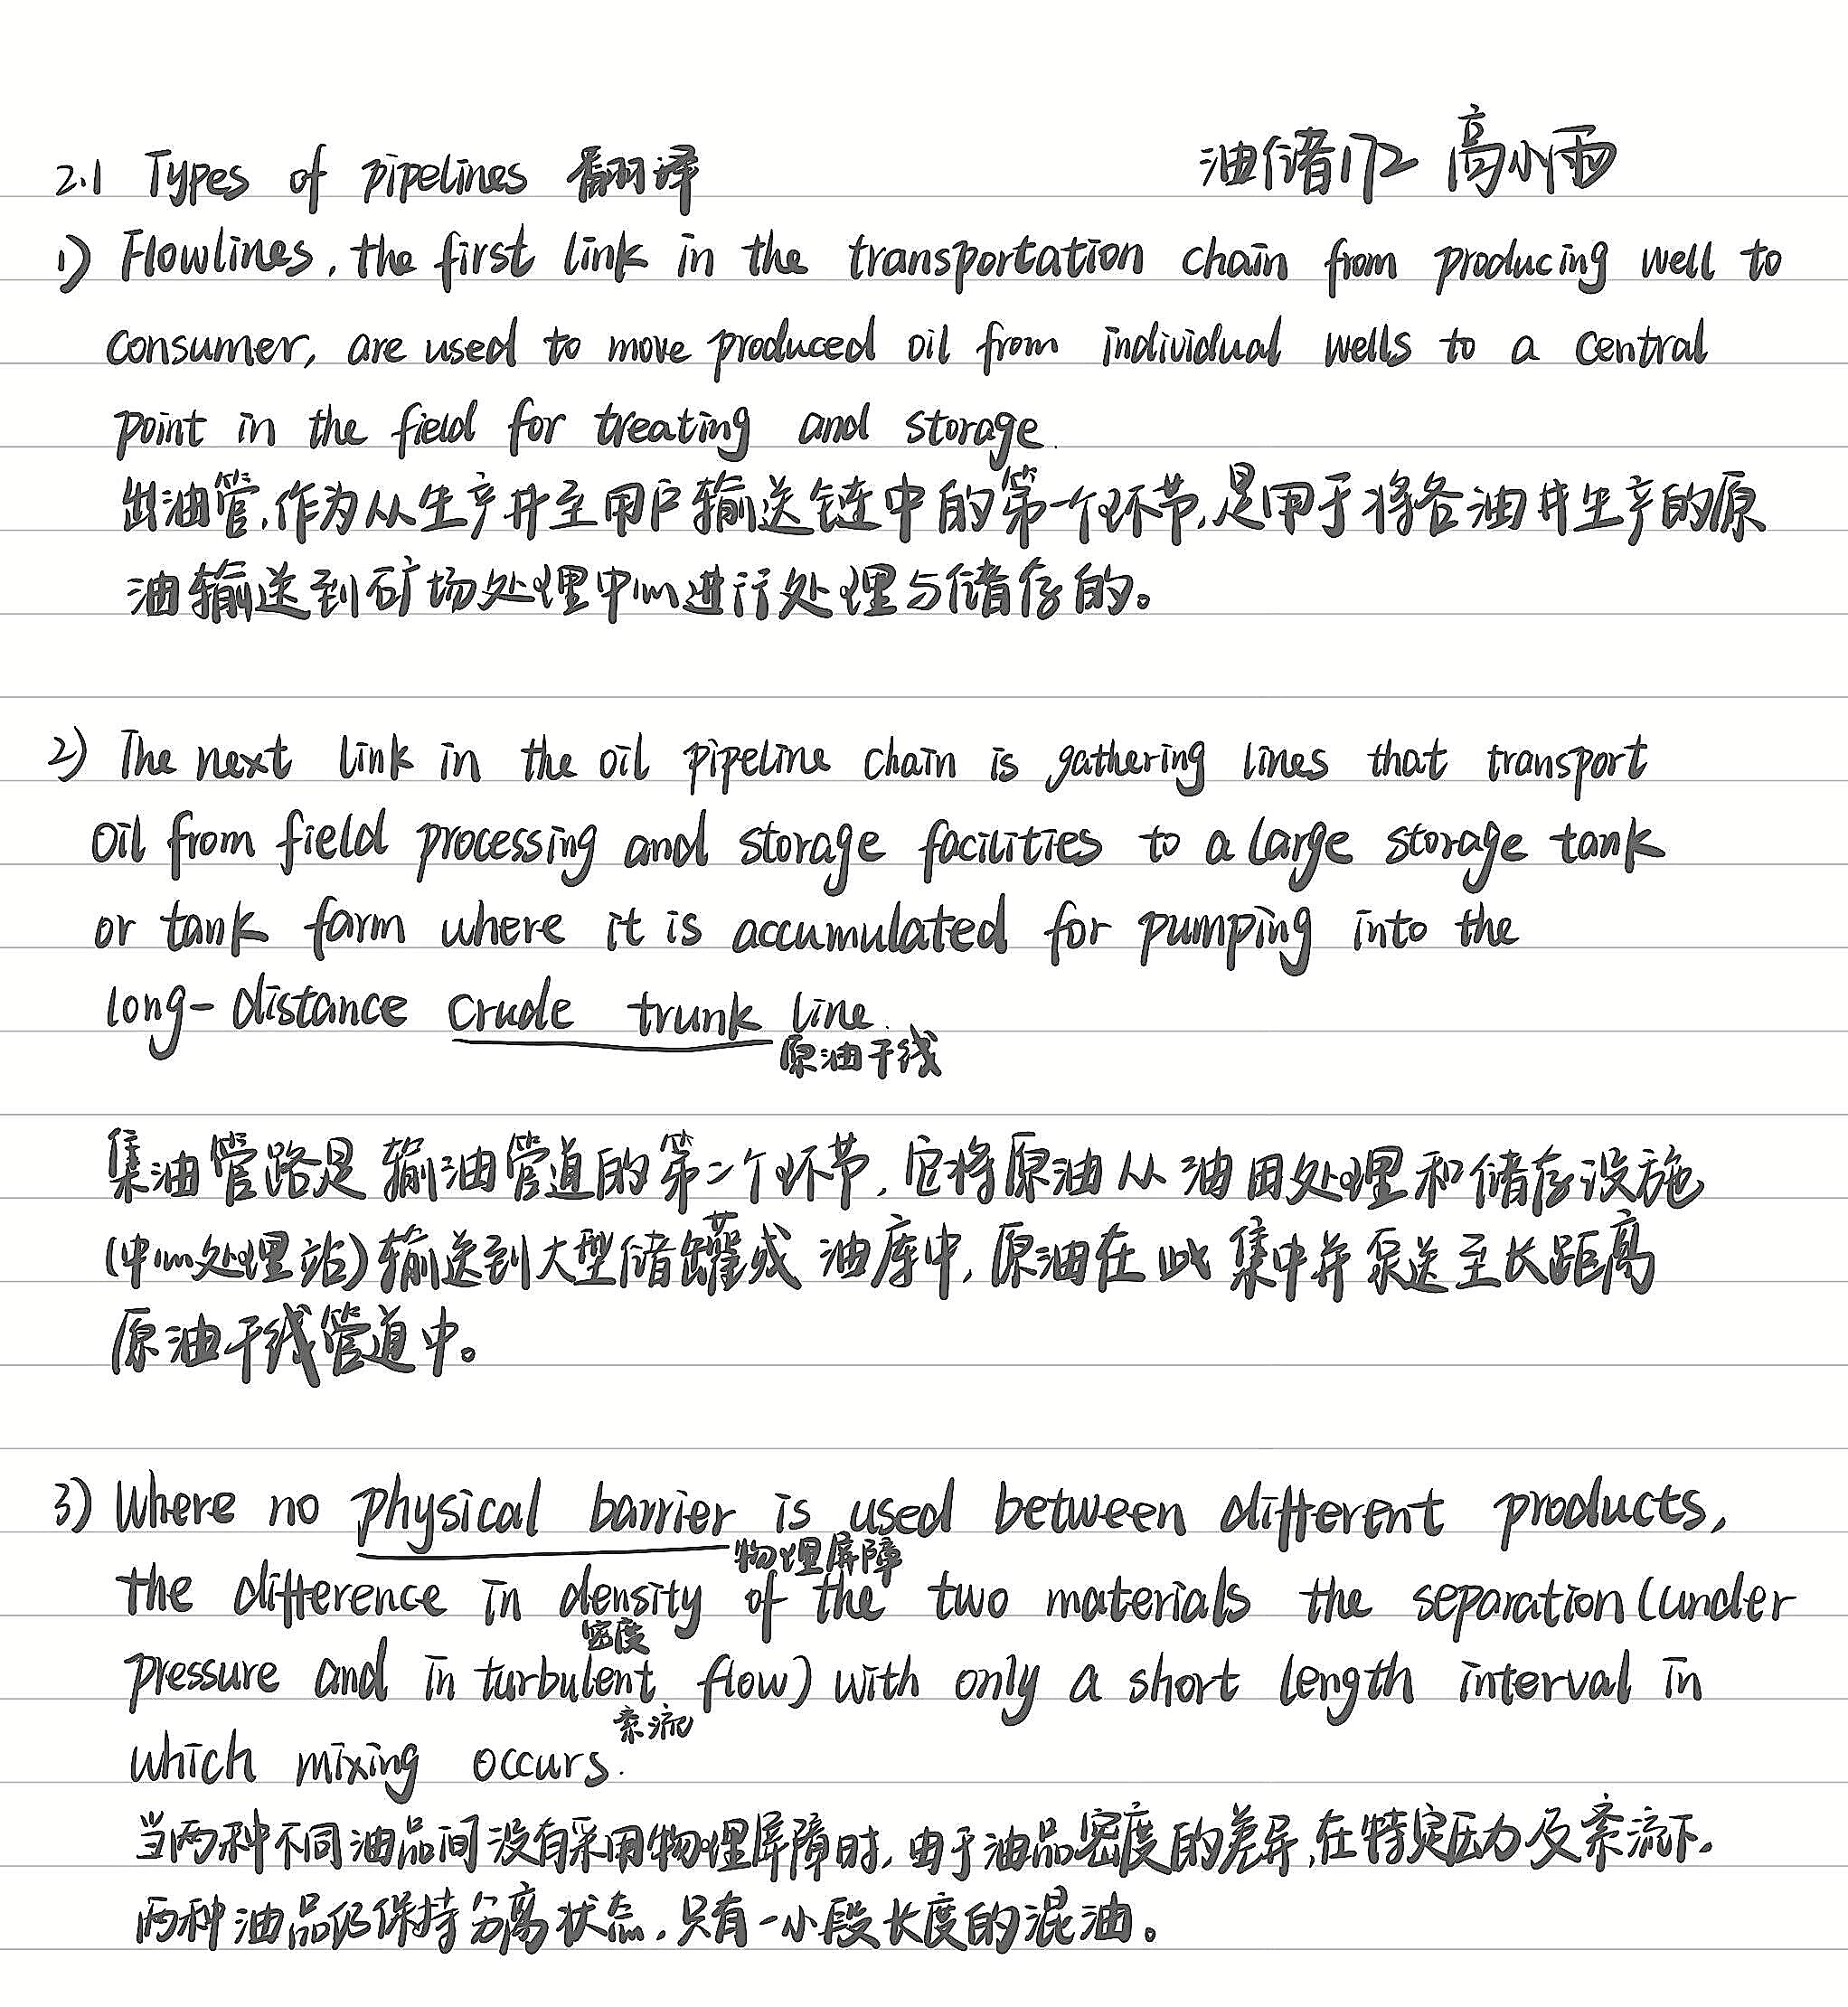 2.1 Types of pipelines 翻译 油储172 高小雨
1) Flowlines, the first link in the transportation chain from producing well to
consumer, are used to move produced oil from individual wells to a central
point in the field for treating and storage.
出油管,作为从生产井至用户输送链中的第一个环节,是用于将各油井生产的原
油输送到矿场处理中心进行处理与储存的。
2) The next link in the oil pipeline chain is gathering lines that transport
oil from field processing and storage facilities to a large storage tank
or tank farm where it is accumulated for pumping into the
long-distance crude trunk line.
原油干线
集油管路是输油管道的第二个环节,它将原油从油田处理和储存设施
(中心处理站)输送到大型储罐或油库中,原油在此集中并泵送至长距离
原油干线管道中。
3) Where no physical barrier is used between different products,
物理屏障
the difference in density of the two materials the separation (under
密度
pressure and in turbulent flow) with only a short length interval in
紊流
which mixing occurs.
当两种不同油品间没有采用物理屏障时,由于油品密度的差异,在特定压力及紊流下,
两种油品仍保持分离状态,只有一小段长度的混油。